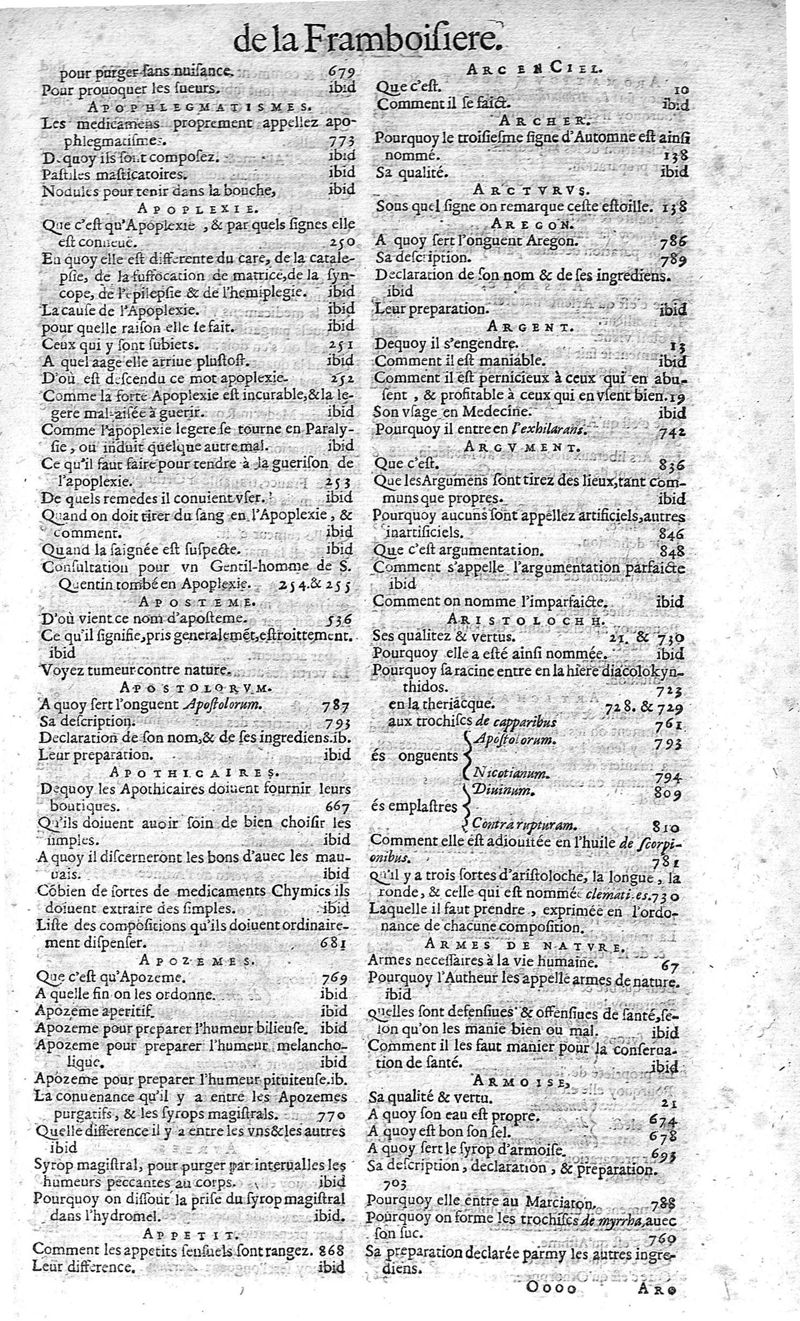 de la Framboiſiere.
pour purger ſans nuiſance. 679
Pour prouoquer les ſueurs. ibid
APOPHLEGMATISMES.
Les medicamens proprement appellez apo-
phlegmatiſmes. 773
Dequoy ils ſont compoſez. ibid
Paſtiles maſticatoires. ibid
Nodules pour tenir dans la bouche, ibid
APOPLEXIE.
Que c'eſt qu'Apoplexie, & par quels ſignes elle
eſt conneue. 250
En quoy elle eſt differente du care, de la catale-
pſie, de la ſuffocation de matrice, de la ſyn-
cope, de l'epilepſie & de l'hemiplegie. ibid
La cauſe de l'Apoplexie. ibid
pour quelle raiſon elle ſe fait. ibid
Ceux qui y ſont ſubiets. 251
A quel aage elle arriue pluſtoſt. ibid
D'où eſt deſcendu ce mot apoplexie. 252
Comme la forte Apoplexie eſt incurable, & la le-
gere mal-aiſée à guerir. ibid
Comme l'apoplexie legere ſe tourne en Paraly-
ſie, ou induit quelque autre mal. ibid
Ce qu'il faut faire pour tendre à la gueriſon de
l'apoplexie. 253
De quels remedes il conuient vſer. ibid
Quand on doit tirer du ſang en l'Apoplexie, &
comment. ibid
Quand la ſaignée eſt ſuſpecte. ibid
Conſultation pour vn Gentil-homme de S.
Quentin tombé en Apoplexie. 254. & 255
APOSTEME.
D'où vient ce nom d'apoſteme. 536
Ce qu'il ſignifie, pris generalemét, eſtroittement.
ibid
Voyez tumeur contre nature.
APOSTOLORVM.
A quoy ſert l'onguent Apoſtolorum. 787
Sa deſcription. 793
Declaration de ſon nom, & de ſes ingrediens. ib.
Leur preparation. ibid
APOTHICAIRES.
Dequoy les Apothicaires doiuent fournir leurs
boutiques. 667
Qu'ils doiuent auoir ſoin de bien choiſir les
ſimples. ibid
A quoy il diſcerneront les bons d'auec les mau-
uais. ibid
Cóbien de ſortes de medicaments Chymics ils
doiuent extraire des ſimples. ibid
Liſte des compoſitions qu'ils doiuent ordinaire-
ment diſpenſer. 681
APOZEMES.
Que c'eſt qu'Apozeme. 769
A quelle fin on les ordonne. ibid
Apozeme aperitif. ibid
Apozeme pour preparer l'humeur bilieuſe. ibid
Apozeme pour preparer l'humeur melancho-
lique. ibid
Apozeme pour preparer l'humeur pituiteuſe. ib.
La conuenance qu'il y a entre les Apozemes
purgatifs, & les ſyrops magiſtrals. 770
Quelle difference il y a entre les vns & les autres
ibid
Syrop magiſtral, pour purger par interualles les
humeurs peccantes au corps. ibid
Pourquoy on diſſout la priſe du ſyrop magiſtral
dans l'hydromel. ibid.
APPETIT.
Comment les appetits ſenſuels ſont rangez. 868
Leur difference. ibid
ARC EN CIEL.
Que c'eſt. 10
Comment il ſe faict. ibid
ARCHER.
Pourquoy le troiſieſme ſigne d'Automne eſt ainſi
nommé. 138
Sa qualité. ibid
ARCTVRVS.
Sous quel ſigne on remarque ceſte eſtoille. 138
AREGON.
A quoy ſert l'onguent Aregon. 786
Sa deſcription. 789
Declaration de ſon nom & de ſes ingrediens.
ibid
Leur preparation. ibid
ARGENT.
Dequoy il s'engendre. 13
Comment il eſt maniable. ibid
Comment il eſt pernicieux à ceux qui en abu-
ſent, & profitable à ceux qui en vſent bien. 19
Son vſage en Medecine. ibid
Pourquoy il entre en l'exhilarans. 742
ARGVMENT.
Que c'eſt. 836
Que les Argumens ſont tirez des lieux, tant com-
muns que propres. ibid
Pourquoy aucuns ſont appellez artificiels, autres
inartificiels. 846
Que c'eſt argumentation. 848
Comment s'appelle l'argumentation parfaicte
ibid
Comment on nomme l'imparfaicte. ibid
ARISTOLOCH.
Ses qualitez & vertus. 21. & 730
Pourquoy elle a eſté ainſi nommée. ibid
Pourquoy ſa racine entre en la hiere diacolokyn-
thidos. 723
en la theriacque. 728. & 729
aux trochiſcs de capparibus 761
és onguents { Apoſtolorum. 793
Nicotianum. 794
és emplaſtres { Diuinum. 809
Contra rupturam. 810
Comment elle eſt adiouſtée en l'huile de ſcorpi-
onibus. 781
Qu'il y a trois ſortes d'ariſtoloche, la longue, la
ronde, & celle qui eſt nommée clematites. 730
Laquelle il faut prendre, exprimée en l'ordo-
nance de chacune compoſition.
ARMES DE NATVRE.
Armes neceſſaires à la vie humaine. 67
Pourquoy l'Autheur les appelle armes de nature.
ibid
Quelles ſont defenſiues & offenſiues de ſanté, ſe-
lon qu'on les manie bien ou mal. ibid
Comment il les faut manier pour la conſerua-
tion de ſanté. ibid
ARMOISE,
Sa qualité & vertu. 21
A quoy ſon eau eſt propre. 674
A quoy eſt bon ſon ſel. 678
A quoy ſert le ſyrop d'armoiſe. 695
Sa deſcription, declaration, & preparation.
703
Pourquoy elle entre au Marciaton. 788
Pourquoy on forme les trochiſcs de myrrha, auec
ſon ſuc. 760
Sa preparation declarée parmy les autres ingre-
diens.
Oooo ARO